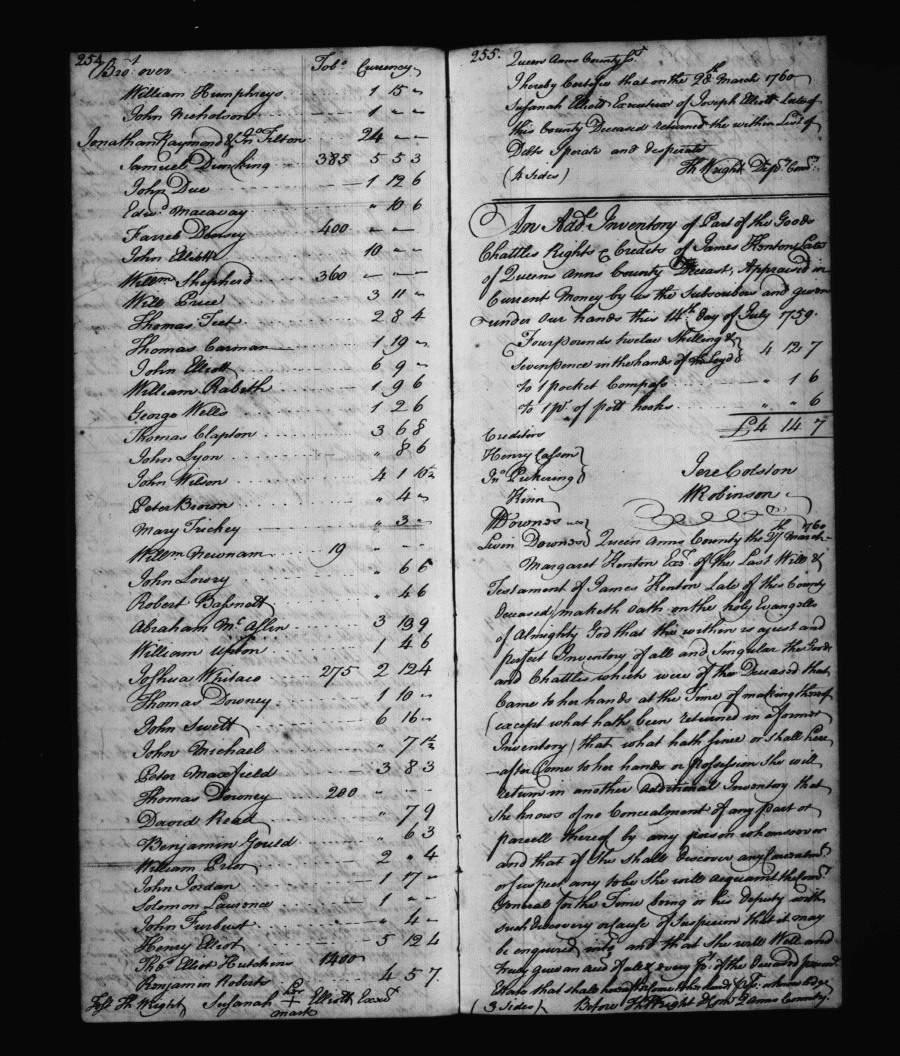 254
Bro.t over Tob.o Currency
William Humphreys 1 15 "
John Nicholson 1 " "
Jonathan Raymond & Jn.o Tilton 24 " "
Samuel Dunking 385 5 5 3
John Due 1 12 6
Edw.d Macavay " 10 6
Farrel Downy 400 " "
John Elliott 10 " "
Will.m Shepherd 360 " "
Will Price 3 11 "
Thomas Teet 2 8 4
Thomas Carman 1 19 "
John Elliott 6 9 "
William Raketh 1 9 6
George Wells 1 2 6
Thomas Clapton 3 6 8
John Lyon " 8 6
John Wilson 4 1 10½
Peter Brown " 4 "
Mary Trickey " 3 "
Will.m Newnam 19 " "
John Lowry " 6 6
Robert Bassnett " 4 6
Abraham M.c Allin 3 13 9
William Upton 1 4 6
Joshua Whitaco 275 2 12 4
Thomas Downey 1 10 "
John Swett 6 16 "
John Michael " 7 1½
Peter Maxfield 3 8 3
Thomas Downey 200 " "
David Read " 7 9
Benjamin Gould " 6 3
William Prior 2 " 4
John Jordan 1 17 "
Solomon Lawrence 1 " "
John Furbust " 4 "
Henry Elliot 5 12 4
Tho.s Elliot Hutchins 1400
Benjamin Roberts 4 5 7
Test Th Wright Susanah her + mark Elliott Execut.x
255. Queen Anns County ss.t
I hereby Certifie that on the 28.th March 1760
Susanah Elliott Executrix of Joseph Elliott Late of
this County Deceased returned the within List of
Debts Sperate and desperate
(4 Sides) Th Wright Dep.y Com.y
An Add.l Inventory of Part of the Goods
Chattles Rights & Credits of James Kenton Late
of Queen Anns County Deceast, Appraised in
Current Money by us the Subscribers and given
under our hands this 14.th day of July 1759.
Four pounds twelve Shilling &
Seven pence in the hands of 4 12 7
To 1 pocket Compass " 1 6
To 1 p.r of pott hooks " " 6
£4 14 7
Creditors
Henry Casson
Jn.o Pickering Jere Colston
Kinn W Robinson
W Downes
Livin Downes Queen Anns County the 27.th March 1760
Margaret Kenton Ex.x of the Last Will &
Testament of James Kenton Late of this County
deceased, maketh oath on the holy Evangells
of Almighty God that the within is a just and
perfect Inventory of all and Singular the Goods
and Chattles which were of the Deceased that
Came to her hands at the Time of making thereof
(except what hath been returned in a former
Inventory) that what hath since or shall here
after Come to her hands or possession She will
return in another additional Inventory that
She knows of no Concealment of any part or
parcell thereof by any person whomsoever
and that if She shall discover any Concealm.t
or suspect any to be She will acquaint the Com.y
General for the Time being or his deputy with
such discovery or Cause of Suspicion that it may
be enquired into and that She will Well and
truly give an acc.t of all & every p.t of the Deceased personal
Estate that shall
(3 Sides) Before Th Wright D Com.y Q Anns County.